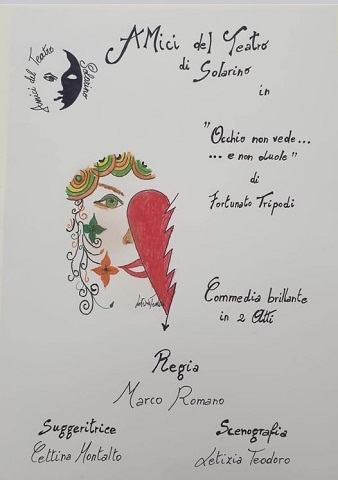 Amici del Teatro
Solarino
AMici del Teatro
di Solarino
in
"Occhio non vede...
... e non duole"
di
Fortunato Tripodi
Commedia brillante
in 2 Atti
Regia
Marco Romano
Suggeritrice
Cettina Montalto
Scenografia
Letizia Teodoro